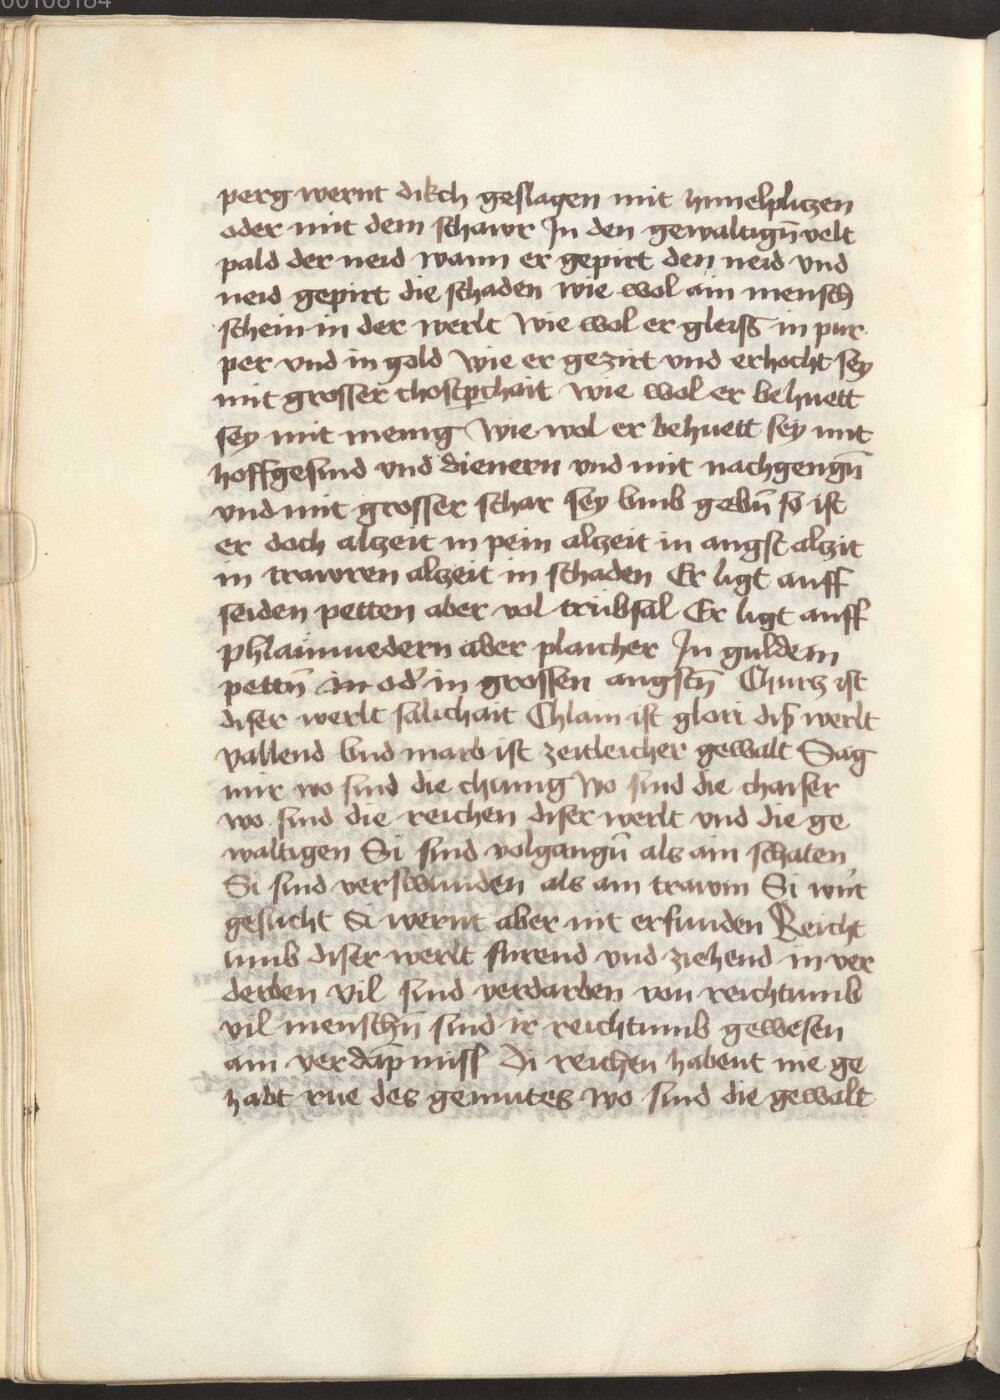 00108184
perg wernt dikch geslagen mit himelplitzen
oder mit dem schawr In den gewaltigen̄ velt
pald der neid wann er gepirt den neid vnd
neid gepirt die schaden wie wol ain mensch
schein in der werlt Wie wol er gleiss in pur
per vnd in gold Wie er gezirt vnd erhocht sey
mit grosser chostperchait Wie wol er behuett
sey mit menig Wie wol er behuett sey mit
hoffgesind vnd dienern vnd mit nachgengn̄
vnd mit grosser schar sey vmb gebn̄ so ist
er doch alczeit in pein alczeit in angst alczit
in trawren alczeit in schaden Er ligt auff
seiden petten aber vol trübsal Er ligt auff
phlaumuedern aber plaicher In guldem
pettn̄ in od' in grossen angstn̄ Churcz ist
diser werlt salichait Chlain ist glori diss werlt
vallend vnd marb ist zeitleicher gewalt Sag
mir wo sind die chunig Wo sind die chaiser
wo sind die reichen diser werlt vnd die ge
waltigen Si sind volgangn̄ als ain schaten
Si sind verswunden als ain trawm Si w'nt
gesucht Si wernt aber nit erfunden Reicht
umb diser werlt furend vnd ziehend in ver
derben Vil sind verdarben von reichtumb
vil menschn̄ sind ir reichtumb gewesen
ain verdāpnuss Di reichen habent nie ge
habt rue des gemutes wo sind die gewalt